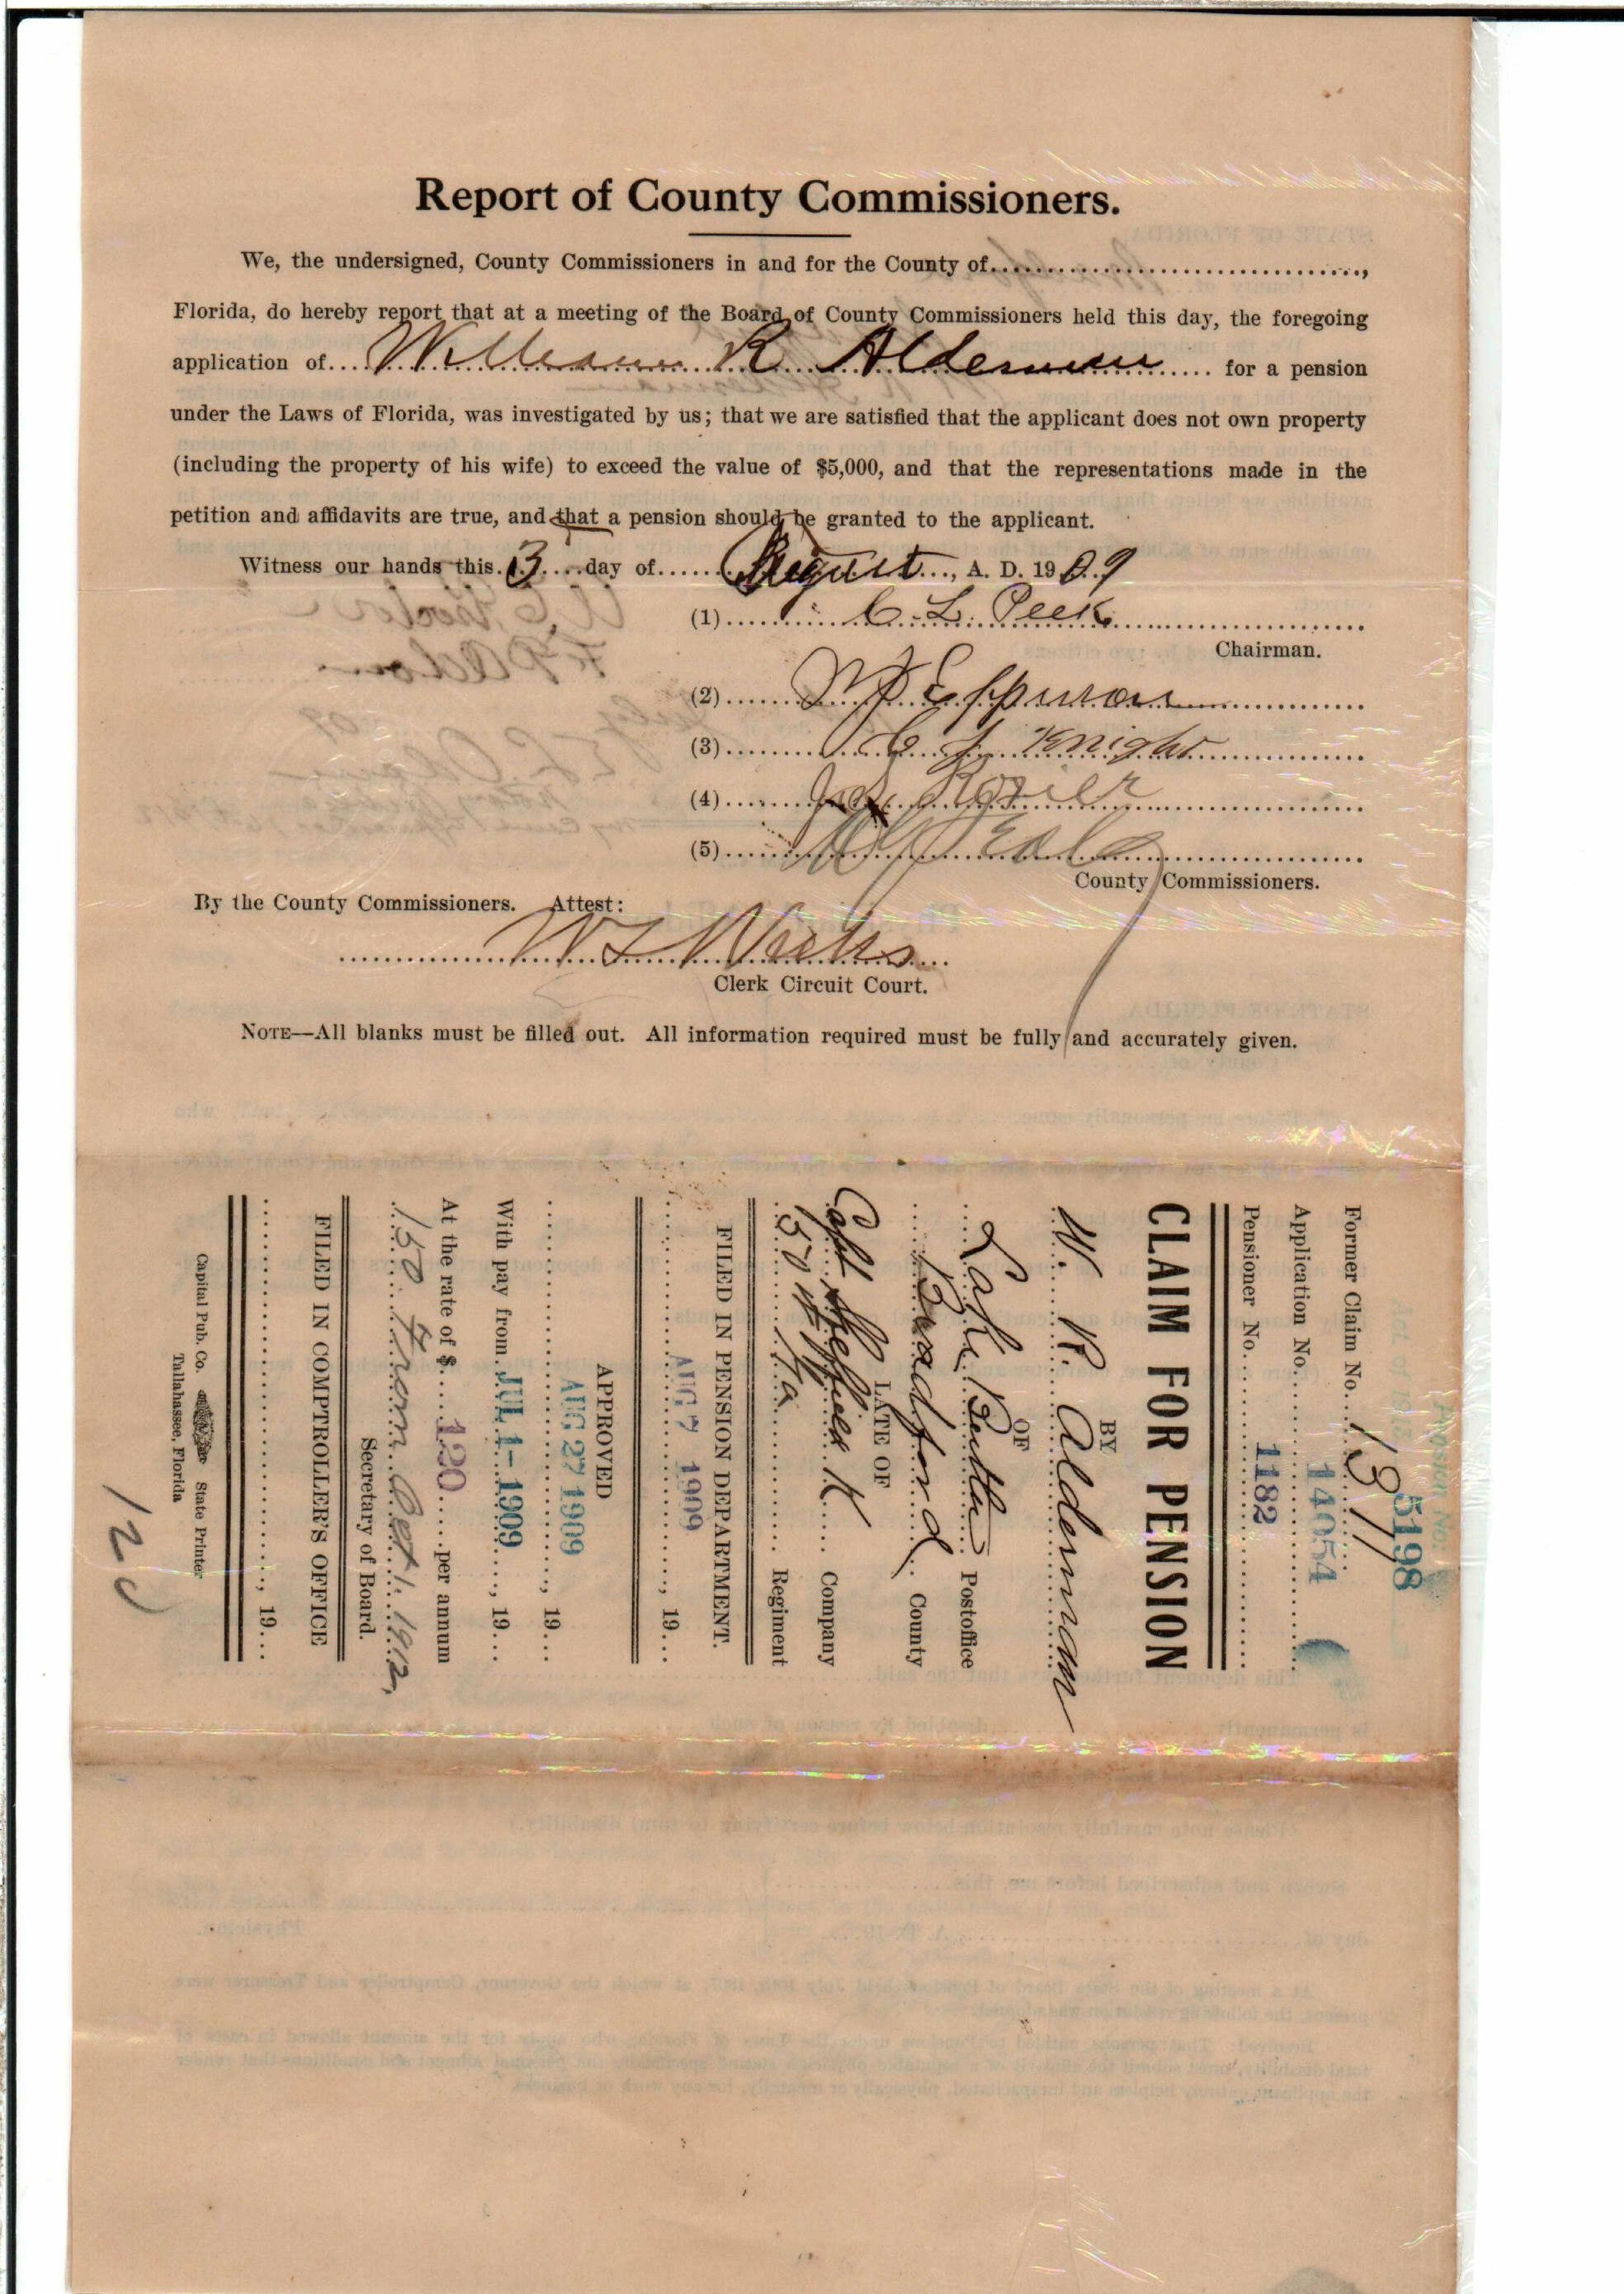 Report of County Commissioners.
We, the undersigned, County Commissioners in and for the County of....................................,
Florida, do hereby report that at a meeting of the Board of County Commissioners held this day, the foregoing
application of William R Alderman for a pension
under the Laws of Florida, was investigated by us; that we are satisfied that the applicant does not own property
(including the property of his wife) to exceed the value of $5,000, and that the representations made in the
petition and affidavits are true, and that a pension should be granted to the applicant.
Witness our hands this 3 day of August, A. D. 1909
(1) C. L. Peek
Chairman.
(2)
(3) C J Knight
(4) Rozier
(5)
County Commissioners.
By the County Commissioners. Attest:
Clerk Circuit Court.
NOTE—All blanks must be filled out. All information required must be fully and accurately given.
5198
Former Claim No. 1377
Application No. 14054
Pensioner No. 1182
CLAIM FOR PENSION
BY
W. R. Alderman
OF
Lake Butler Postoffice
Bradford County
LATE OF
Capt Sheffield K Company
50 Regiment
FILED IN PENSION DEPARTMENT.
AUG 7 1909, 19...
APPROVED
AUG 27 1909, 19...
With pay from JUL 1 - 1909, 19...
At the rate of $ 120 per annum
150 from Oct 1. 1912.
Secretary of Board.
FILED IN COMPTROLLER'S OFFICE
, 19...
Capital Pub. Co. State Printer
Tallahassee, Florida
120